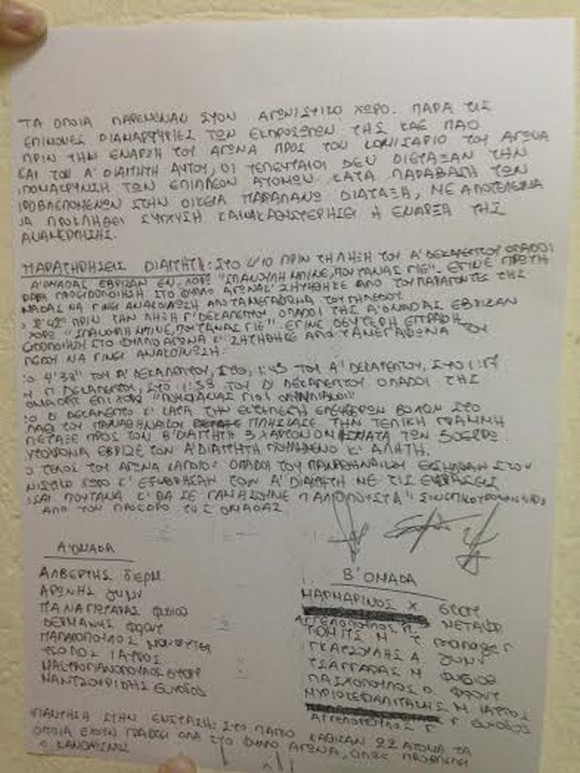 ΤΑ ΟΠΟΙΑ ΠΑΡΕΜΕΝΑΝ ΣΤΟΝ ΑΓΩΝΙΣΤΙΚΟ ΧΩΡΟ. ΠΑΡΑ ΤΙΣ
ΕΠΙΜΟΝΕΣ ΔΙΑΜΑΡΤΥΡΙΕΣ ΤΩΝ ΕΚΠΡΟΣΩΠΩΝ ΤΗΣ ΚΑΕ ΠΑΟ
ΠΡΙΝ ΤΗΝ ΕΝΑΡΞΗ ΤΟΥ ΑΓΩΝΑ ΠΡΟΣ ΤΟΝ ΚΟΜΙΣΑΡΙΟ ΤΟΥ ΑΓΩΝΑ
ΚΑΙ ΤΟΝ Α' ΔΙΑΙΤΗΤΗ ΑΥΤΟΥ, ΟΙ ΤΕΛΕΥΤΑΙΟΙ ΔΕΝ ΔΙΕΤΑΞΑΝ ΤΗΝ
ΠΟΜΑΚΡΥΝΣΗ ΤΩΝ ΕΠΙΠΛΕΟΝ ΑΤΟΜΩΝ ΚΑΤΑ ΠΑΡΑΒΑΣΗ ΤΩΝ
ΡΟΒΛΕΠΟΜΕΝΩΝ ΣΤΗΝ ΟΙΚΕΙΑ ΠΑΡΑΠΑΝΩ ΔΙΑΤΑΞΗ, ΜΕ ΑΠΟΤΕΛΕΣΜΑ
ΝΑ ΠΡΟΚΛΗΘΕΙ ΣΥΓΧΥΣΗ ΚΑΙ ΝΑ ΚΑΘΥΣΤΕΡΗΣΕΙ Η ΕΝΑΡΞΗ ΤΗΣ
ΑΝΑΜΕΤΡΗΣΗΣ.
ΠΑΡΑΤΗΡΗΣΕΙΣ ΔΙΑΙΤΗΤΗ: ΣΤΟ 4'10 ΠΡΙΝ ΤΗ ΛΗΞΗ ΤΟΥ Α' ΔΕΚΑΛΕΠΤΟΥ ΟΠΑΔΟΙ
Α' ΟΜΑΔΑΣ ΕΒΡΙΖΑΝ ΕΝ ΧΟΡΩ "ΣΠΑΝΟΥΛΗ ΠΟΥΤΑΝΑΣ ΓΙΕ". ΕΓΙΝΕ ΠΡΩΤΗ
ΠΡΟΕΙΔΟΠΟΙΗΣΗ ΣΤΟ ΦΥΛΛΟ ΑΓΩΝΑ Κ' ΖΗΤΗΘΗΚΕ ΑΠΟ ΤΟΥ ΠΑΡΑΓΟΝΤΕΣ ΤΗΣ
ΜΑΔΑΣ ΝΑ ΓΙΝΕΙ ΑΝΑΚΟΙΝΩΣΗ ΑΠΟ ΤΑ ΜΕΓΑΦΩΝΑ ΤΟΥ ΓΗΠΕΔΟΥ
ΠΡΙΝ ΤΗΝ ΛΗΞΗ Γ' ΔΕΚΑΛΕΠΤΟΥ ΟΠΑΔΟΙ ΤΗΣ Α' ΟΜΑΔΑΣ ΕΒΡΙΖΑΝ
ΧΟΡΩ "ΣΠΑΝΟΥΛΗ ΠΟΥΤΑΝΑΣ ΓΙΕ". ΕΓΙΝΕ ΔΕΥΤΕΡΗ ΕΓΓΡΑΦΗ
ΕΙΔΟΠΟΙΗΣΗ ΣΤΟ ΦΥΛΛΟ ΑΓΩΝΑ Κ' ΖΗΤΗΘΗΚΕ ΑΠΟ ΤΑ ΜΕΓΑΦΩΝΑ ΤΟΥ
ΠΕΔΟΥ ΝΑ ΓΙΝΕΙ ΑΝΑΚΟΙΝΩΣΗ
:Ο 4'38" ΤΟΥ Α' ΔΕΚΑΛΕΠΤΟΥ, ΣΤΟ 1:45 ΤΟΥ Α' ΔΕΚΑΛΕΠΤΟΥ, ΣΤΟ 1:17
Γ' ΔΕΚΑΛΕΠΤΟΥ, ΣΤΟ 1:33 ΤΟΥ Δ' ΔΕΚΑΛΕΠΤΟΥ ΟΠΑΔΟΙ ΤΗΣ
ΟΜΑΔΑΣ ΕΝ ΧΟΡΩ "ΠΟΥΤΑΝΑΣ ΓΙΟΙ ΟΛΥΜΠΙΑΚΟΙ"
:Ο Δ' ΔΕΚΑΛΕΠΤΟ Κ' ΚΑΤΑ ΤΗΝ ΕΚΤΕΛΕΣΗ ΕΛΕΥΘΕΡΩΝ ΒΟΛΩΝ ΣΤΟ
ΤΟΥ ΠΑΝΑΘΗΝΑΙΚΟΥ ΠΛΗΣΙΑΣΕ ΤΗΝ ΤΕΛΙΚΗ ΓΡΑΜΜΗ
ΠΕΤΑΞΕ ΠΡΟΣ ΤΟΝ Β' ΔΙΑΙΤΗΤΗ 3 ΧΑΡΤΟΝΟΜΙΣΜΑΤΑ ΤΩΝ 50 ΕΥΡΩ
ΥΤΟΧΡΟΝΑ ΕΒΡΙΣΕ ΤΟΝ Α' ΔΙΑΙΤΗΤΗ ΠΟΥΛΗΜΕΝΟ Κ' ΑΛΗΤΗ.
Ο ΤΕΛΟΣ ΤΟΥ ΑΓΩΝΑ ΚΑΠΟΙΟΙ ΟΠΑΔΟΙ ΤΟΥ ΠΑΝΑΘΗΝΑΙΚΟΥ ΣΤΟΝ
ΝΙΣΤΙΚΟ ΧΩΡΟ Κ' ΤΟΝ Α' ΔΙΑΙΤΗΤΗ ΜΕ ΤΙΣ ΕΚΦΡΑΣΕΙΣ
ΕΙΣΑΙ ΠΟΥΤΑΝΑ Κ' ΘΑ ΣΕ ΓΑΜΗΣΟΥΜΕ ΠΑΛΙΟΠΟΥΣΤΑ"
ΑΠΟ ΤΟΝ ΠΡΟΕΔΡΟ ΤΗΣ ΟΜΑΔΑΣ
Α' ΟΜΑΔΑ
ΑΛΒΕΡΤΗΣ ΔΙΕΡΜ.
ΑΡΩΝΗΣ ΓΥΜΝ
ΠΑΝΑΓΙΩΤΑΡΑΣ ΦΥΣΙΟ
ΔΕΡΜΑΝΗΣ ΦΡΟΝΤ
ΠΑΠΑΔΟΠΟΥΛΟΣ ΜΑΝΑΤΖΕΡ
ΤΣΟΛΟΣ ΙΑΤΡΟΣ
ΜΑΣΤΡΟΓΙΑΝΟΠΟΥΛΟΣ
ΜΑΝΤΖΟΥΡΙΔΗΣ ΕΦΟΔΟΣ
Β' ΟΜΑΔΑ
ΜΑΡΜΑΡΙΝΟΣ Χ.
ΑΓΓΕΛΟΠΟΥΛΟΣ Π. ΜΕΤΑΦΡ
ΤΟΜΙΤΣ Μ. T. manager
ΓΚΑΤΖΟΥΛΗΣ Α ΓΥΜΝ
ΤΣΑΓΓΑΡΑΣ Μ ΦΥΣΙΟ
ΠΑΣΧΟΠΟΥΛΟΣ Δ. ΦΡΟΝΤ
ΜΥΡΙΟΚΕΦΑΛΙΤΑΚΗΣ Μ. ΙΑΤΡΟΣ
ΑΓΓΕΛΟΠΟΥΛΟΣ Γ
ΠΑΝΤΗΣΗ ΣΤΗΝ ΕΝΣΤΑΣΗ: ΣΤΟ ΠΑΓΚΟ ΚΑΘΙΣΑΝ 22 ΑΤΟΜΑ ΤΑ
ΟΠΟΙΑ ΕΧΟΥΝ ΓΡΑΦΟΥ ΟΛΑ ΣΤΟ ΦΥΛΛΟ ΑΓΩΝΑ, ΟΠΩΣ ΠΡΟΒΛΕΠΕΙ
Ο ΚΑΝΟΝΙΣΜΟΣ